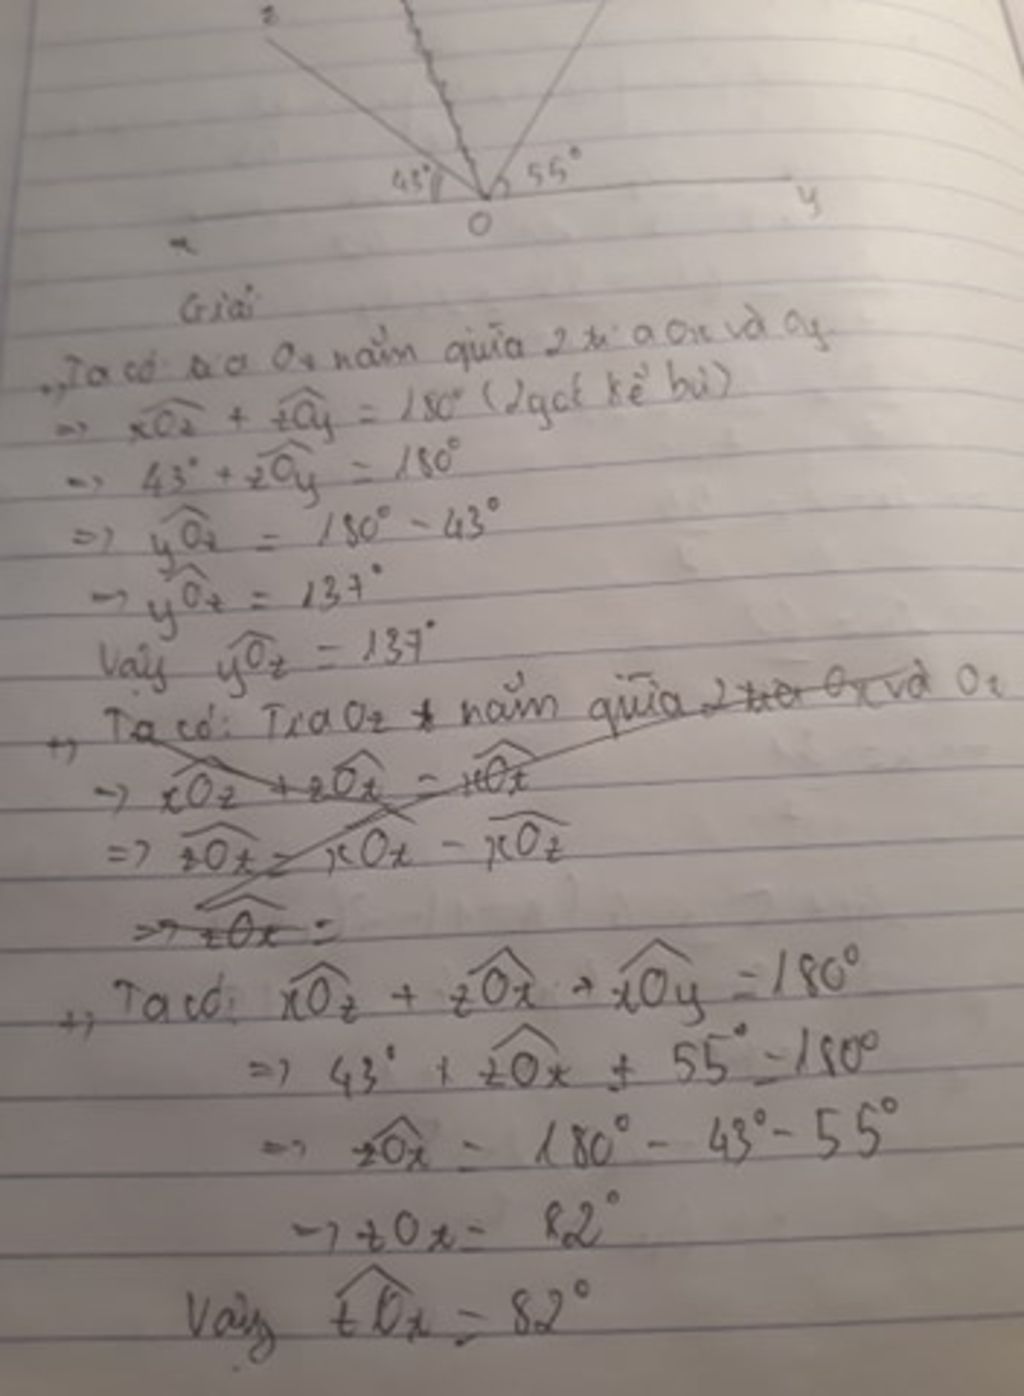 z
43°
55°
O
y
x
Giải
+, Ta có: tia Oz nằm giữa 2 tia Ox và Oy
=> xOz + zOy = 180° (2 góc kề bù)
=> 43° + zOy = 180°
=> yOz = 180° - 43°
=> yOz = 137°
Vậy yOz = 137°
+, Ta có: Tia Oz t nằm giữa 2 tia Ox và Ot
=> xOz + zOt = xOt
=> zOt = xOt - xOz
=> zOt =
+, Ta có: xOz + zOt + tOy = 180°
=> 43° + zOt + 55° = 180°
=> zOt = 180° - 43° - 55°
=> zOt = 82°
Vậy zOt = 82°